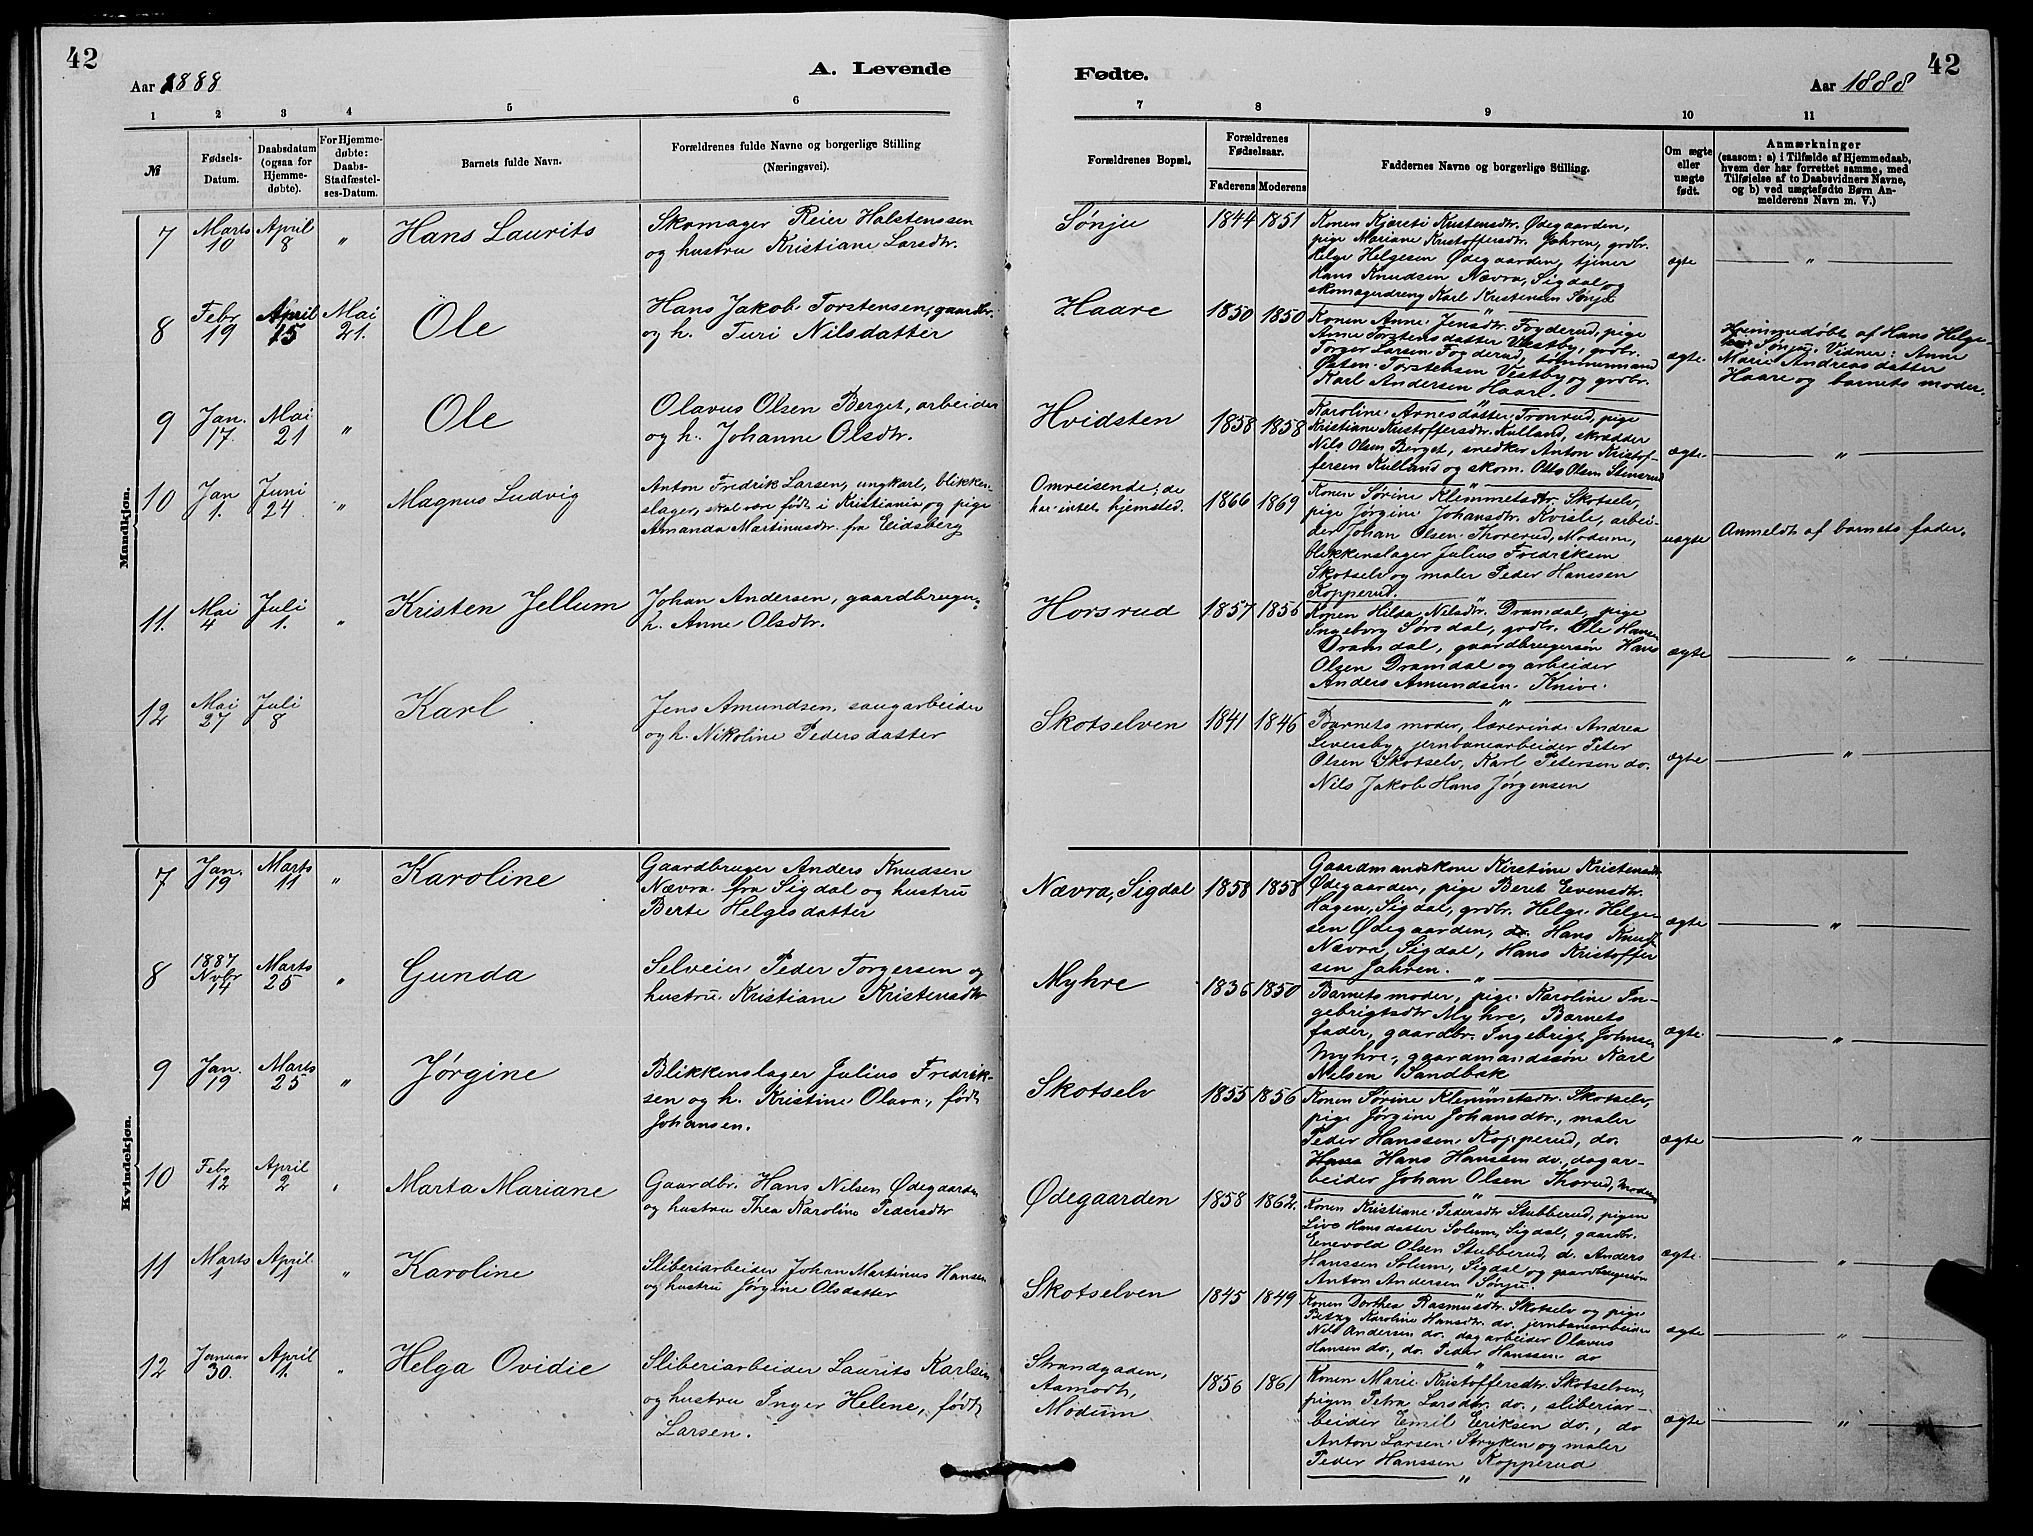 42
Aar 1888
A. Levende
Fødte.
Aar 1888
42
1 2 3 4 5 6 7 8 9 10 11
№
Fødsels-
Datum.
Daabsdatum
(ogsaa for
Hjemme-
døbte).
For Hjemme-
døbte:
Daabs-
Stadfæstel-
ses-Datum.
Barnets fulde Navn.
Forældrenes fulde Navne og borgerlige Stilling
(Næringsvei).
Forældrenes Bopæl.
Forældrenes
Fødselsaar.
Faderens Moderens
Faddernes Navne og borgerlige Stilling.
Om ægte
eller
uægte
født.
Anmærkninger
(saasom: a) i Tilfælde af Hjemmedaab,
hvem der har forrettet samme, med
Tilføielse af to Daabsvidners Navne,
og b) ved uægtefødte Børn An-
melderens Navn m. V.)
Mandkjøn.
7
Marts
10
April
8
"
Hans Laurits
Skomager Reier Halstenssen
og hustru Kristiane Larsdtr.
Sønju
1844 1851
Konen Kjersti Kristensdtr. Ødegaarden,
pige Mariane Kristoffersdtr. Jahren, grdbr.
Helge Helgesen Ødegaarden, tjener
Hans Knudsen Nævra, Sigdal og
skomagerdreng Karl Kristensen Sønju
ægte
"
8
Febr
19
April
15
Mai
21.
Ole
Hans Jakob Torstensen, gaardbr.
og h. Turi Nilsdatter
Haare
1850 1850
Konen Anne Jensdtr. Fogderud, pige
Anne Torstensdatter Vestby, grdbr.
Torger Larsen Fogderud, tømmermand
Østen Torstensen Vestby og grdbr.
Karl Andersen Haarl.
ægte
Hjemmedøbt af Hans Helge-
sen Sønju. Vidner: Anne
Marie Andreasdatter
Haare og barnets moder.
9
Jan.
17.
Mai
21
"
Ole
Olavus Olsen Berget, arbeider
og h. Johanne Olsdtr.
Hvidsten
1858 1858
Karoline Arnesdatter Tronrud, pige
Kristiane Kristoffersdtr. Kulland, skrædder
Nils Olsen Berget, snedker Anton Kristof-
fersen Kulland og skom. Otto Olsen Stensrud
ægte
"
10
Jan
1.
Juni
24
"
Magnus Ludvig
Anton Fredrik Larsen, ungkarl, blikken-
slager, skal være født i Kristiania og pige
Amanda Martinusdtr. fra Eidsberg
Omreisende; de
har intet hjemsted.
1866 1869
Konen Sørine Klemmetsdtr. Skotselv,
pige Jørgine Johansdtr. Kvisle, arbei-
der Johan Olsen Thorerud, Modum,
blikkenslager Julius Fredriksen
Skotselv og maler Peder Hanssen
Kopperud.
uægte
Anmeldt af barnets fader.
11.
Mai
4
Juli
1.
"
Kristen Jellum
Johan Andersen, gaardbruger,
h. Anne Olsdtr.
Horsrud
1857 1856
Konen Hilda Nilsdtr. Dramdal, pige
Ingeborg Sørsdal, grdbr. Ole Hansen
Dramdal, gaardbrugersøn Hans
Olsen Dramdal og arbeider
Anders Amundsen Knive.
ægte
"
12
Mai
27
Juli
8
Karl
Jens Amundsen, saugarbeider
og h. Nikoline Pedersdatter
Skotselven
1841 1846
Barnets moder, lærerinde Andrea
Leversby, jernbanearbeider Peter
Olsen Skotselv, Karl Petersen do.
Nils Jakob Hans Jørgensen
ægte
"
Kvindekjøn.
7
Jan.
19
Marts
11
"
Karoline
Gaardbruger Anders Knudsen
Nævra fra Sigdal og hustru
Berte Helgesdatter
Nævra, Sigdal
1858 1858
Gaardmandskone Kirstine Kristensdtr
Ødegaarden, pige Beret Evensdtr.
Hagen, Sigdal, grdbr. Helge Helge-
sen Ødegaarden, do. Hans Knuds.
Nævra, Sigdal, Hans Kristoffer
sen Jahren.
ægte
"
8
1887
Novbr
14
Marts
25
"
Gunda
Selveier Peder Torgersen og
hustru Kristiane Kristensdtr
Myhre
1836 1850
Barnets moder, pige Karoline In-
gebrigtsdtr Myhre, Barnets
fader, gaardbr. Ingebrigt Johnsen
Myhre, gaardmandssøn Karl
Nilsen Sandbæk
ægte
"
9
Jan.
19
Marts
25
"
Jørgine
Blikkenslager Julius Fredrik-
sen og h. Kristine Olava, født
Johansen.
Skotselv
1855 1856
Konen Sørine Klemmetsdtr. Skotselv,
pige Jørgine Johansdtr., maler
Peder Hanssen Kopperud, do.
Hans Hanssen do, dagar-
beider Johan Olsen Thorud, Modum
ægte
"
10
Febr
12
April
2
"
Marta Mariane
Gaardbr. Hans Nilsen Ødegaarden
og hustru Thea Karoline Pedersdtr
Ødegaarden
1858 1862.
Konen Kristiane Pedersdtr Stubberud, pigen
Live Hansdatter Solum, Sigdal, gaardbr.
Enevold Olsen Stubberud, d. Anders
Hanssen Solum, Sigdal og gaardbrugersøn
Anton Andersen Sønju.
ægte
"
11
Marts
1
April
1
"
Karoline
Sliberiarbeider Johan Martinus Hansen
og hustru Jørgine Olsdatter
Skotselven
1845 1849
Konen Dorthea Rasmusdtr. Skotselv og pige
Betzy Karoline Hansdtr. do. jernbanearbeider
Nils Andersen do. dagarbeider Olavus
Hansen do., do. Peder Hanssen do
ægte
"
12
Januar
30.
April
1.
"
Helga Ovidie
Sliberiarbeider Laurits Karlsen
og hustru Inger Helene, født
Larsen.
Strandgaden,
Aamodt,
Modum
1856 1861
Konen Marie Kristoffersdtr. Skotselven,
pigen Petra Larsdtr. do., sliberiar-
beider Emil Eriksen do., do
Anton Larsen Stryken og maler
Peder Hanssen Kopperud
ægte
"